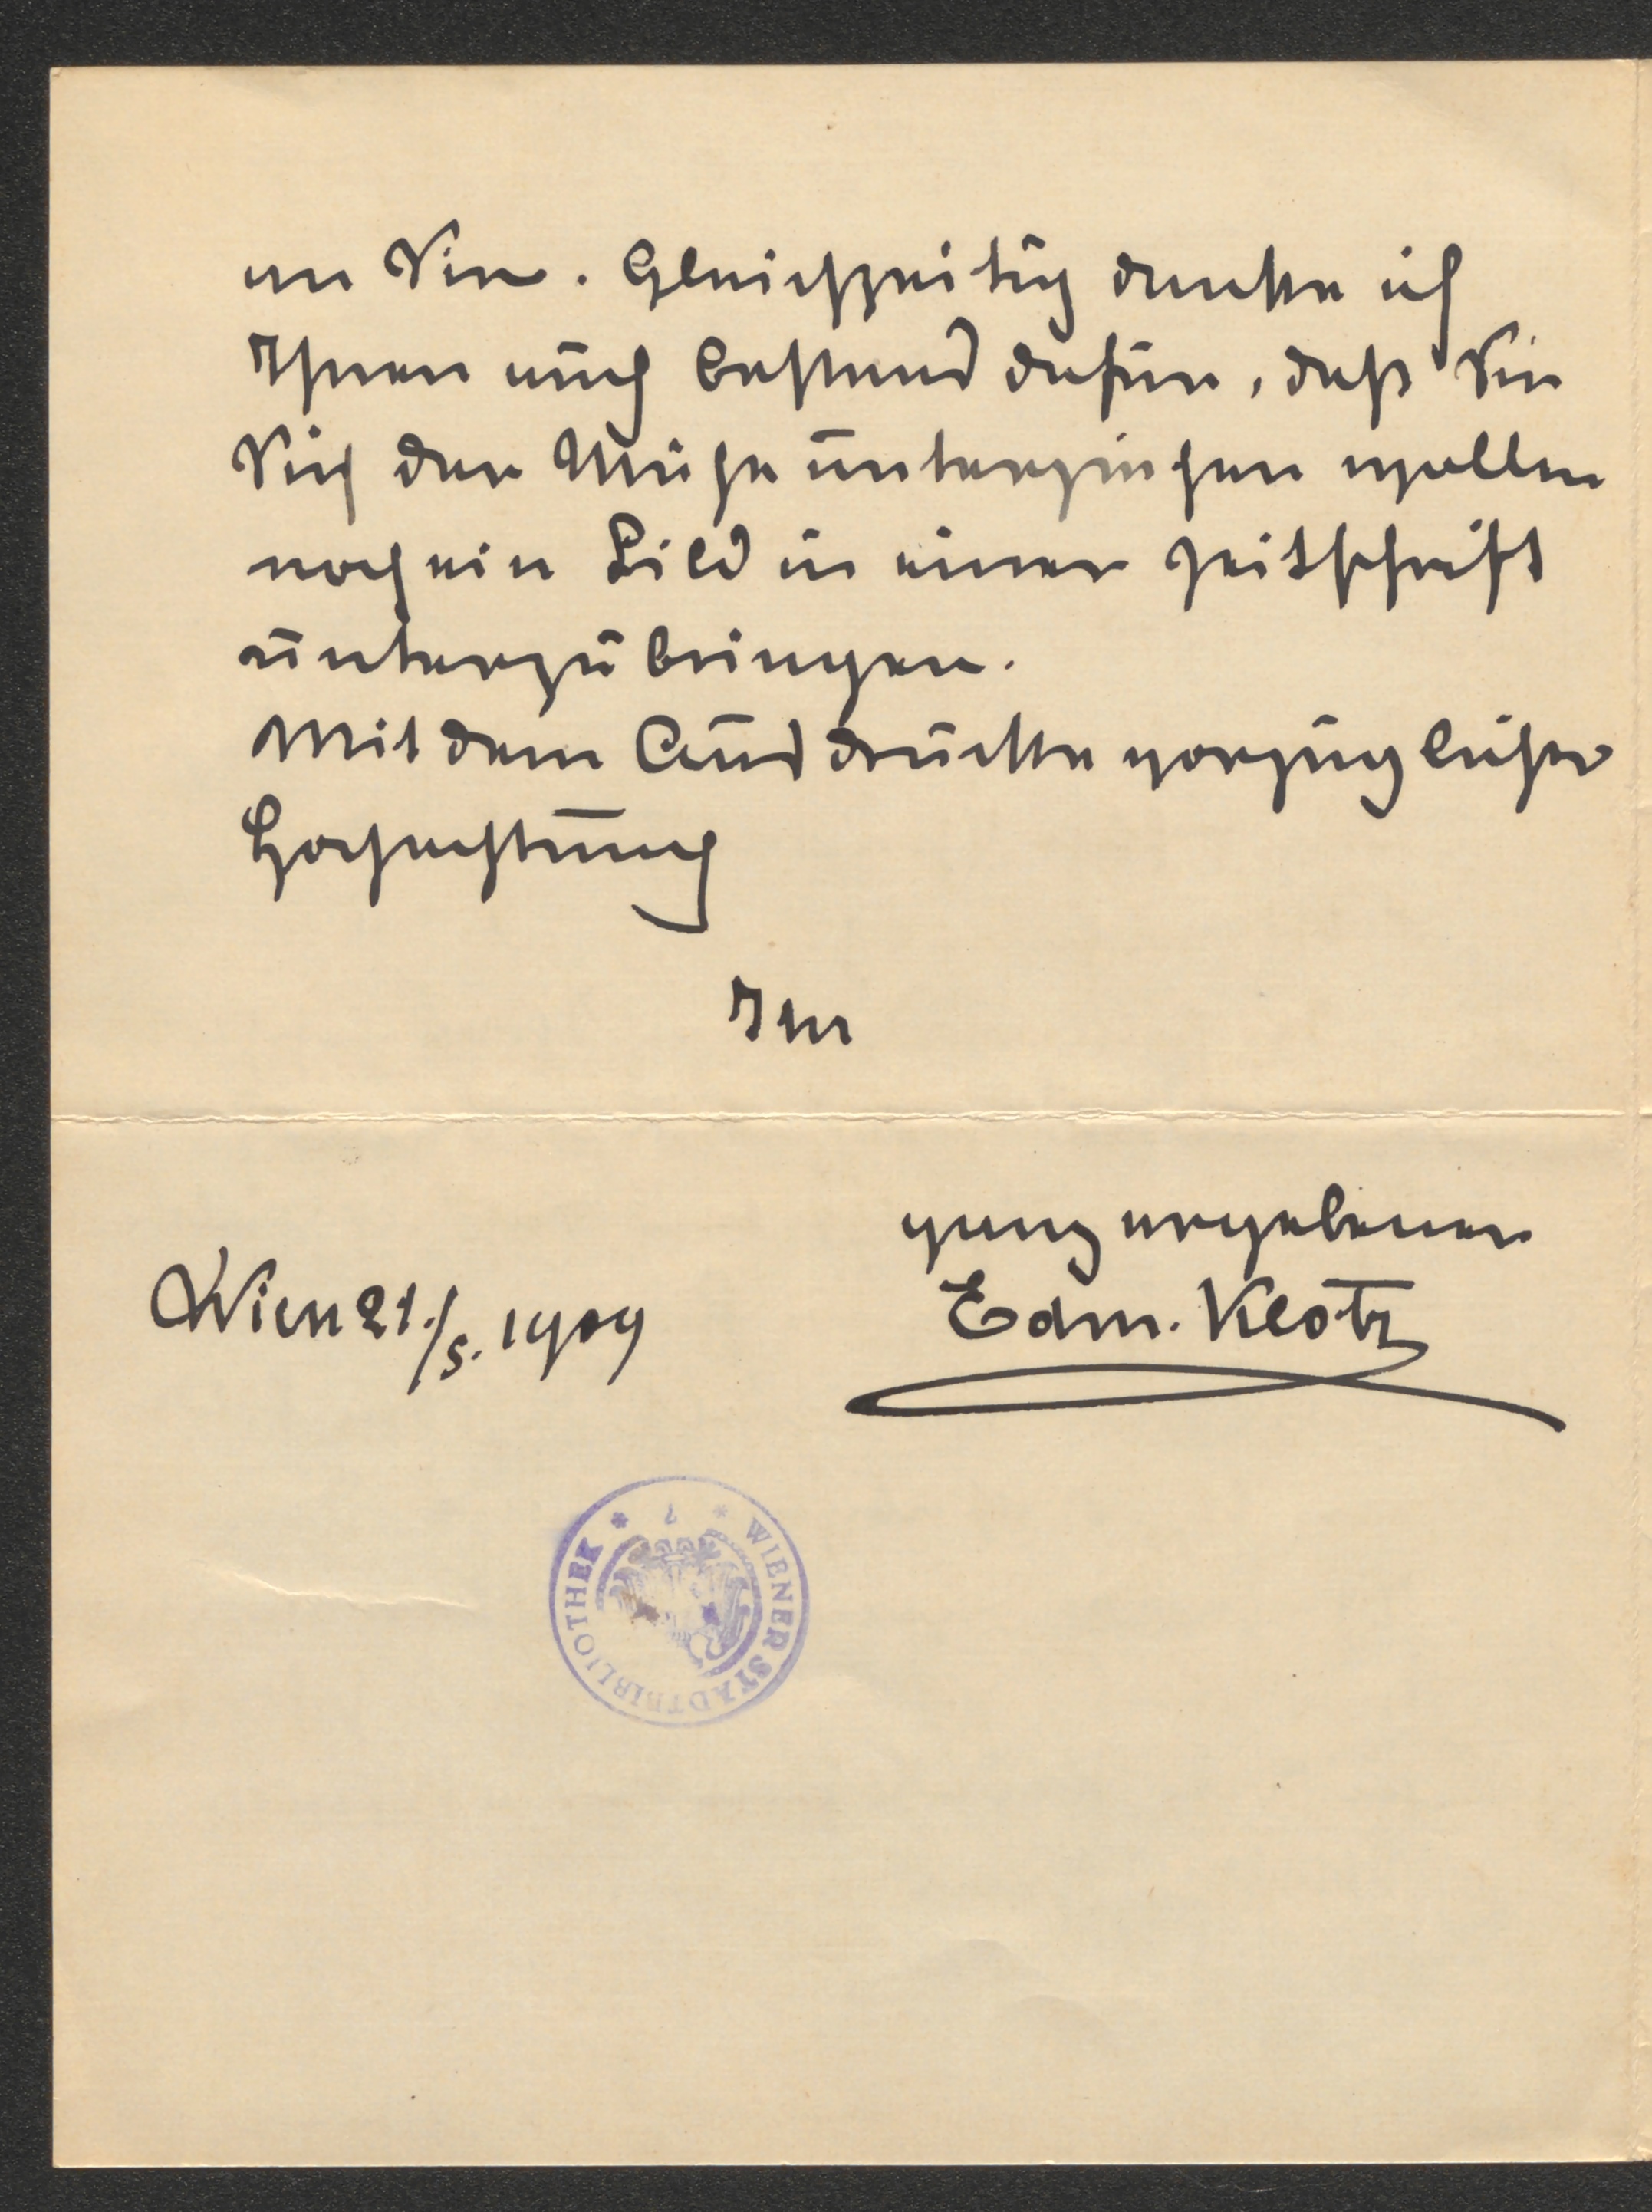 an Sie. Gleichzeitig danke ich
Ihnen auch bestens dafür, daß Sie
Sich der Mühe unterziehen wollen
noch ein Bild in einer Zeitschrift
unterzubringen.
Mit dem Ausdrucke vorzüglicher
Hochachtung
Ihr
ganz ergebener
Edm. Klotz
Wien 21./5. 1909
WIENER STADTBIBLIOTHEK